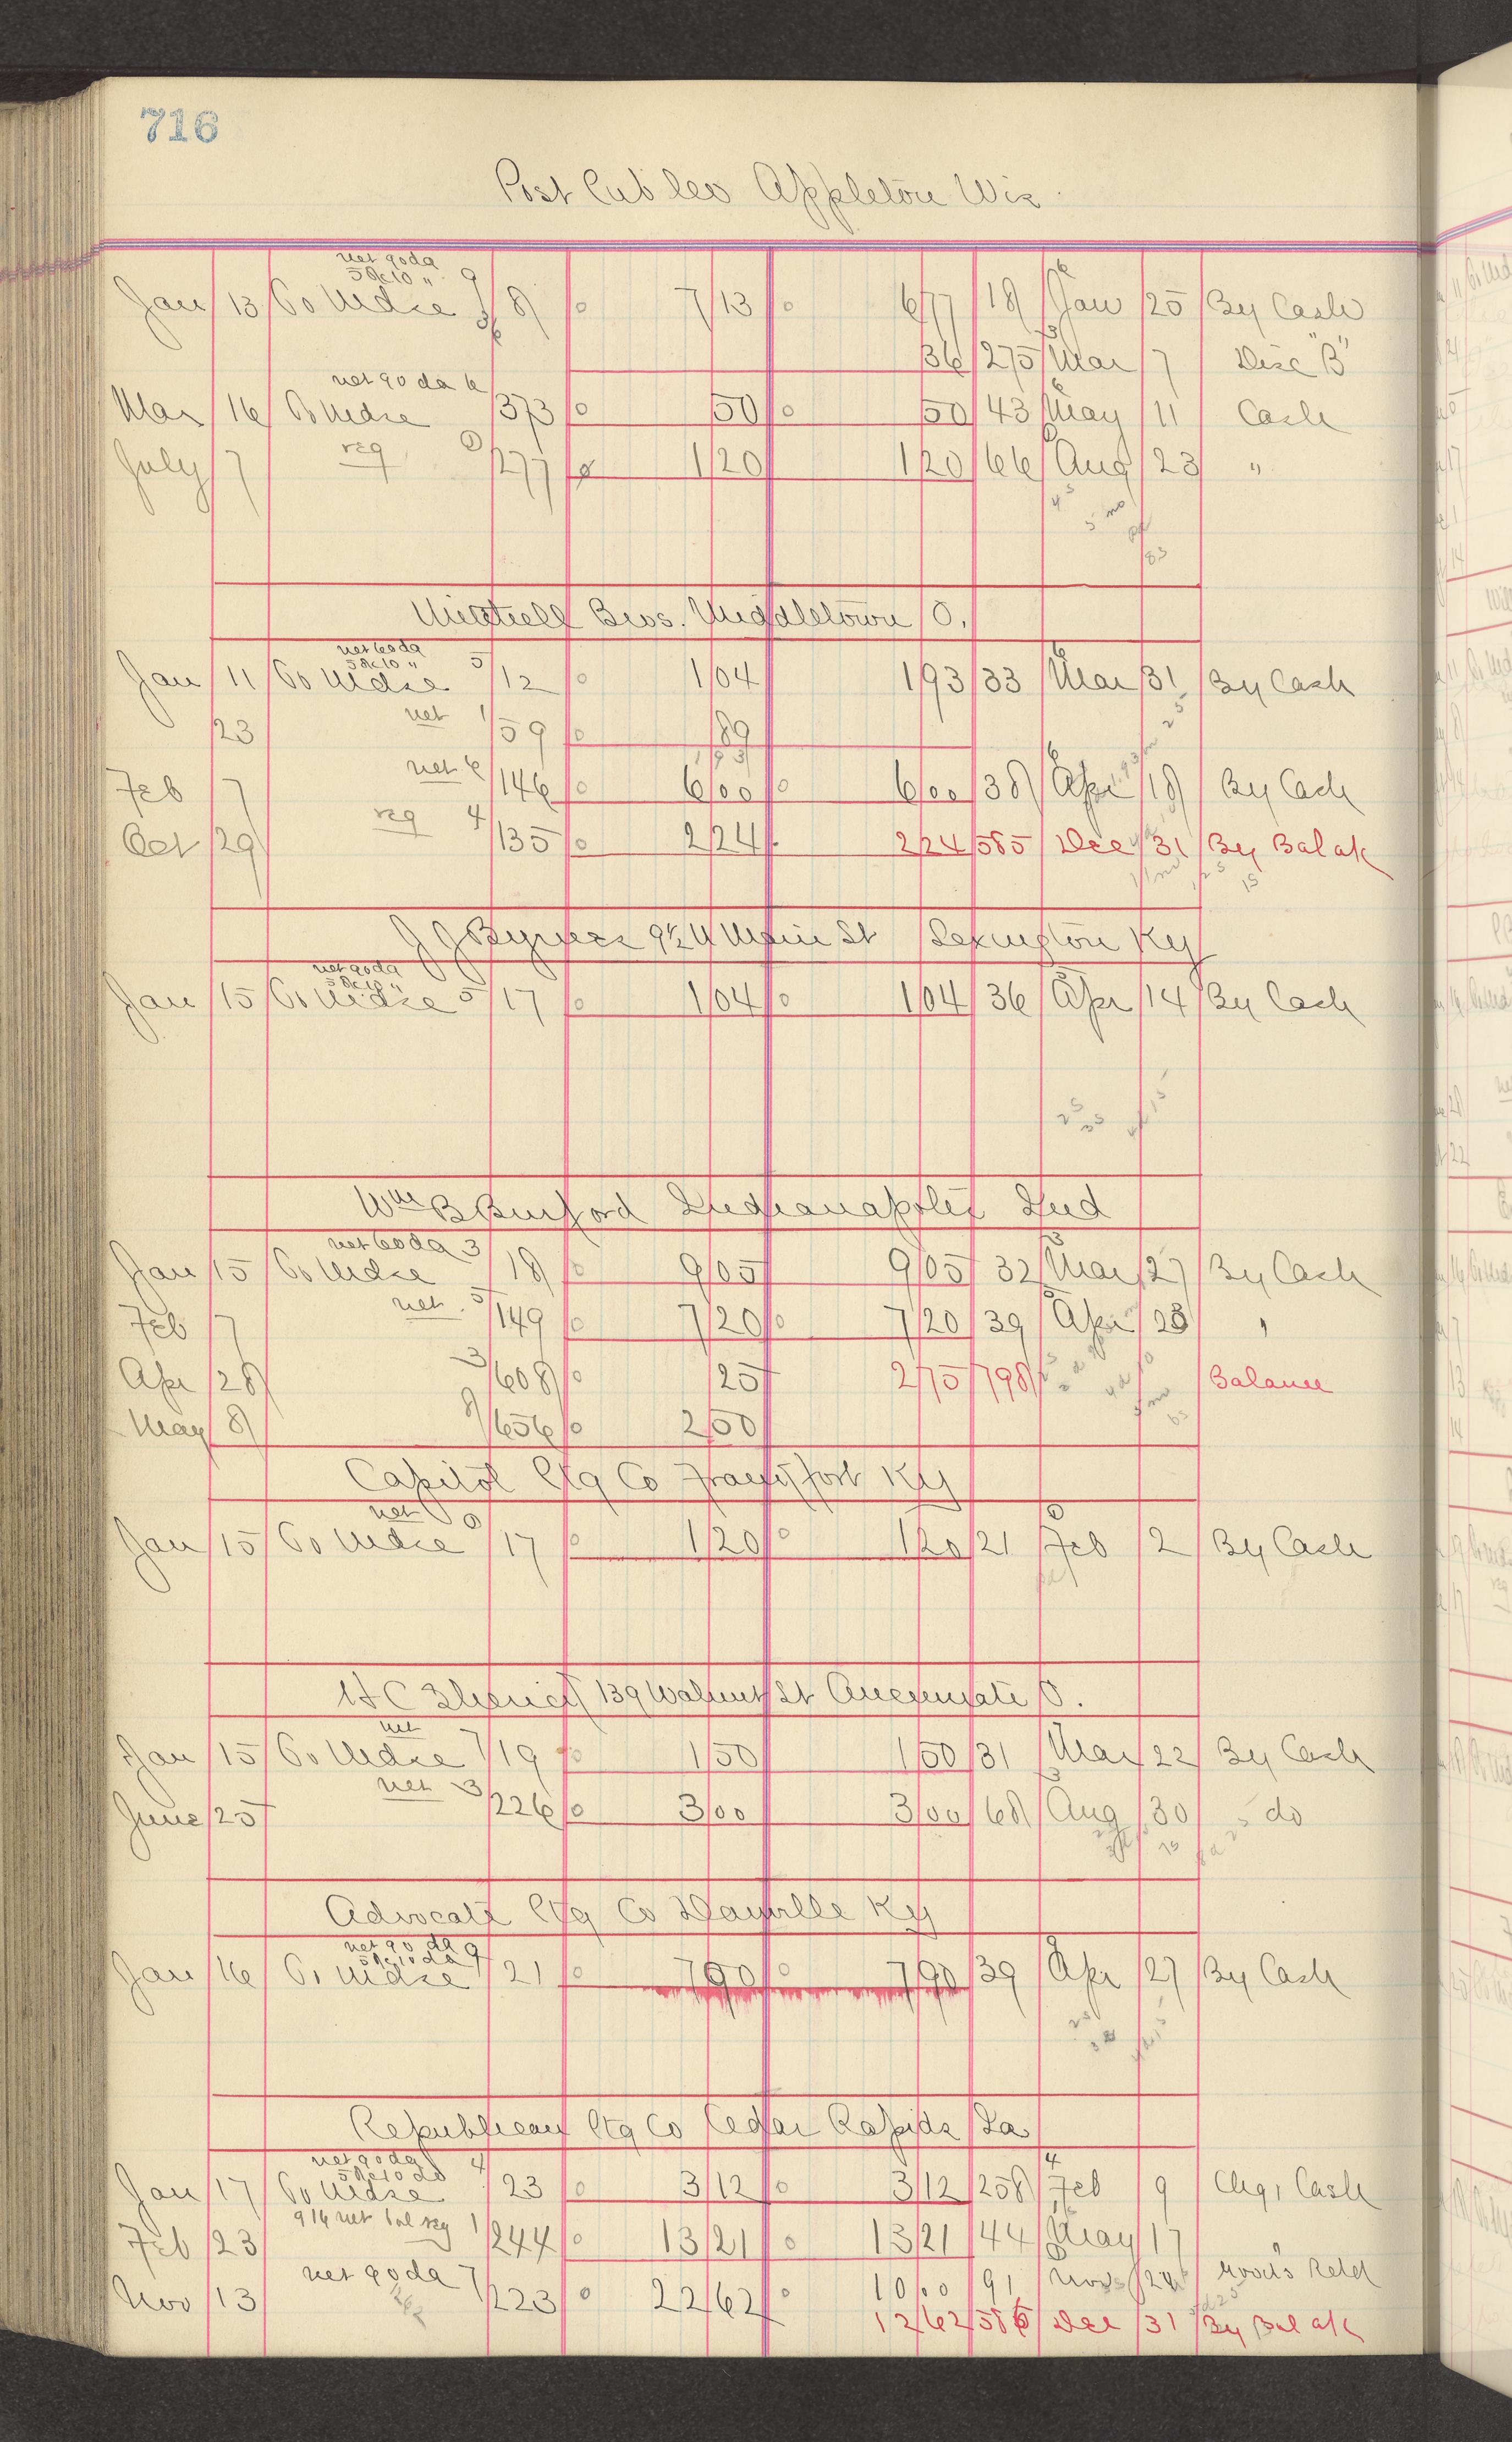 716
Post Pub Co Appleton Wis
net 90 da
5 % 10 "
Jan 13 To Mdse 9/8 7 13 6 77 18 Jan 25 By Cash
36 275 Mar 7 Disc "B"
net 90 da
Mar 16 To Mdse 6/373 50 50 43 May 11 Cash
July 7 reg 277 1 20 1 20 66 Aug 23 "
Bros. Middletown O.
net 60 da
5 % 10 "
Jan 11 To Mdse 5/12 1 04 1 93 33 Mar 31 By Cash
23 net 1/59 89
1 93
Feb 7 net 6/146 6 00 6 00 38 Apr 18 By Cash
Oct 29 reg 4/135 2 24 2 24 585 Dec 31 By Bal a/c
Main St Lexington Ky
net 90 da
5 % 10 "
Jan 15 To Mdse 5/17 1 04 1 04 36 Apr 14 By Cash
Wm B Burford Indianapolis Ind
net 60 da
Jan 15 To Mdse 3/18 9 05 9 05 32 Mar 27 By Cash
Feb 7 net 5/149 7 20 7 20 39 Apr 28 "
Apr 28 3/608 25 2 75 798 Balance
May 8 8/656 2 50
Capitol Ptg Co Frankfort Ky
net
Jan 15 To Mdse 0/17 1 20 1 20 21 Feb 2 By Cash
H C 139 Walnut St Cincinnati O.
net
Jan 15 To Mdse 7/19 1 50 1 50 31 Mar 22 By Cash
June 25 net 3/226 3 00 3 00 68 Aug 30 do
Advocate Ptg Co Danville Ky
net 90 da
5 % 10 da
Jan 16 To Mdse 9/21 7 90 7 90 39 Apr 27 By Cash
Republican Ptg Co Cedar Rapids Ia
net 90 da
5 % 10 do
Jan 17 To Mdse 4/23 3 12 3 12 258 Feb 9 Chg, Cash
9 16 net bal reg
Feb 23 1/244 13 21 13 21 44 May 17 "
Nov 13 net 90 da 7/223 22 62 10 00 91 Nov 24 Goods Retd
12 62 586 Dec 31 By Bal a/c